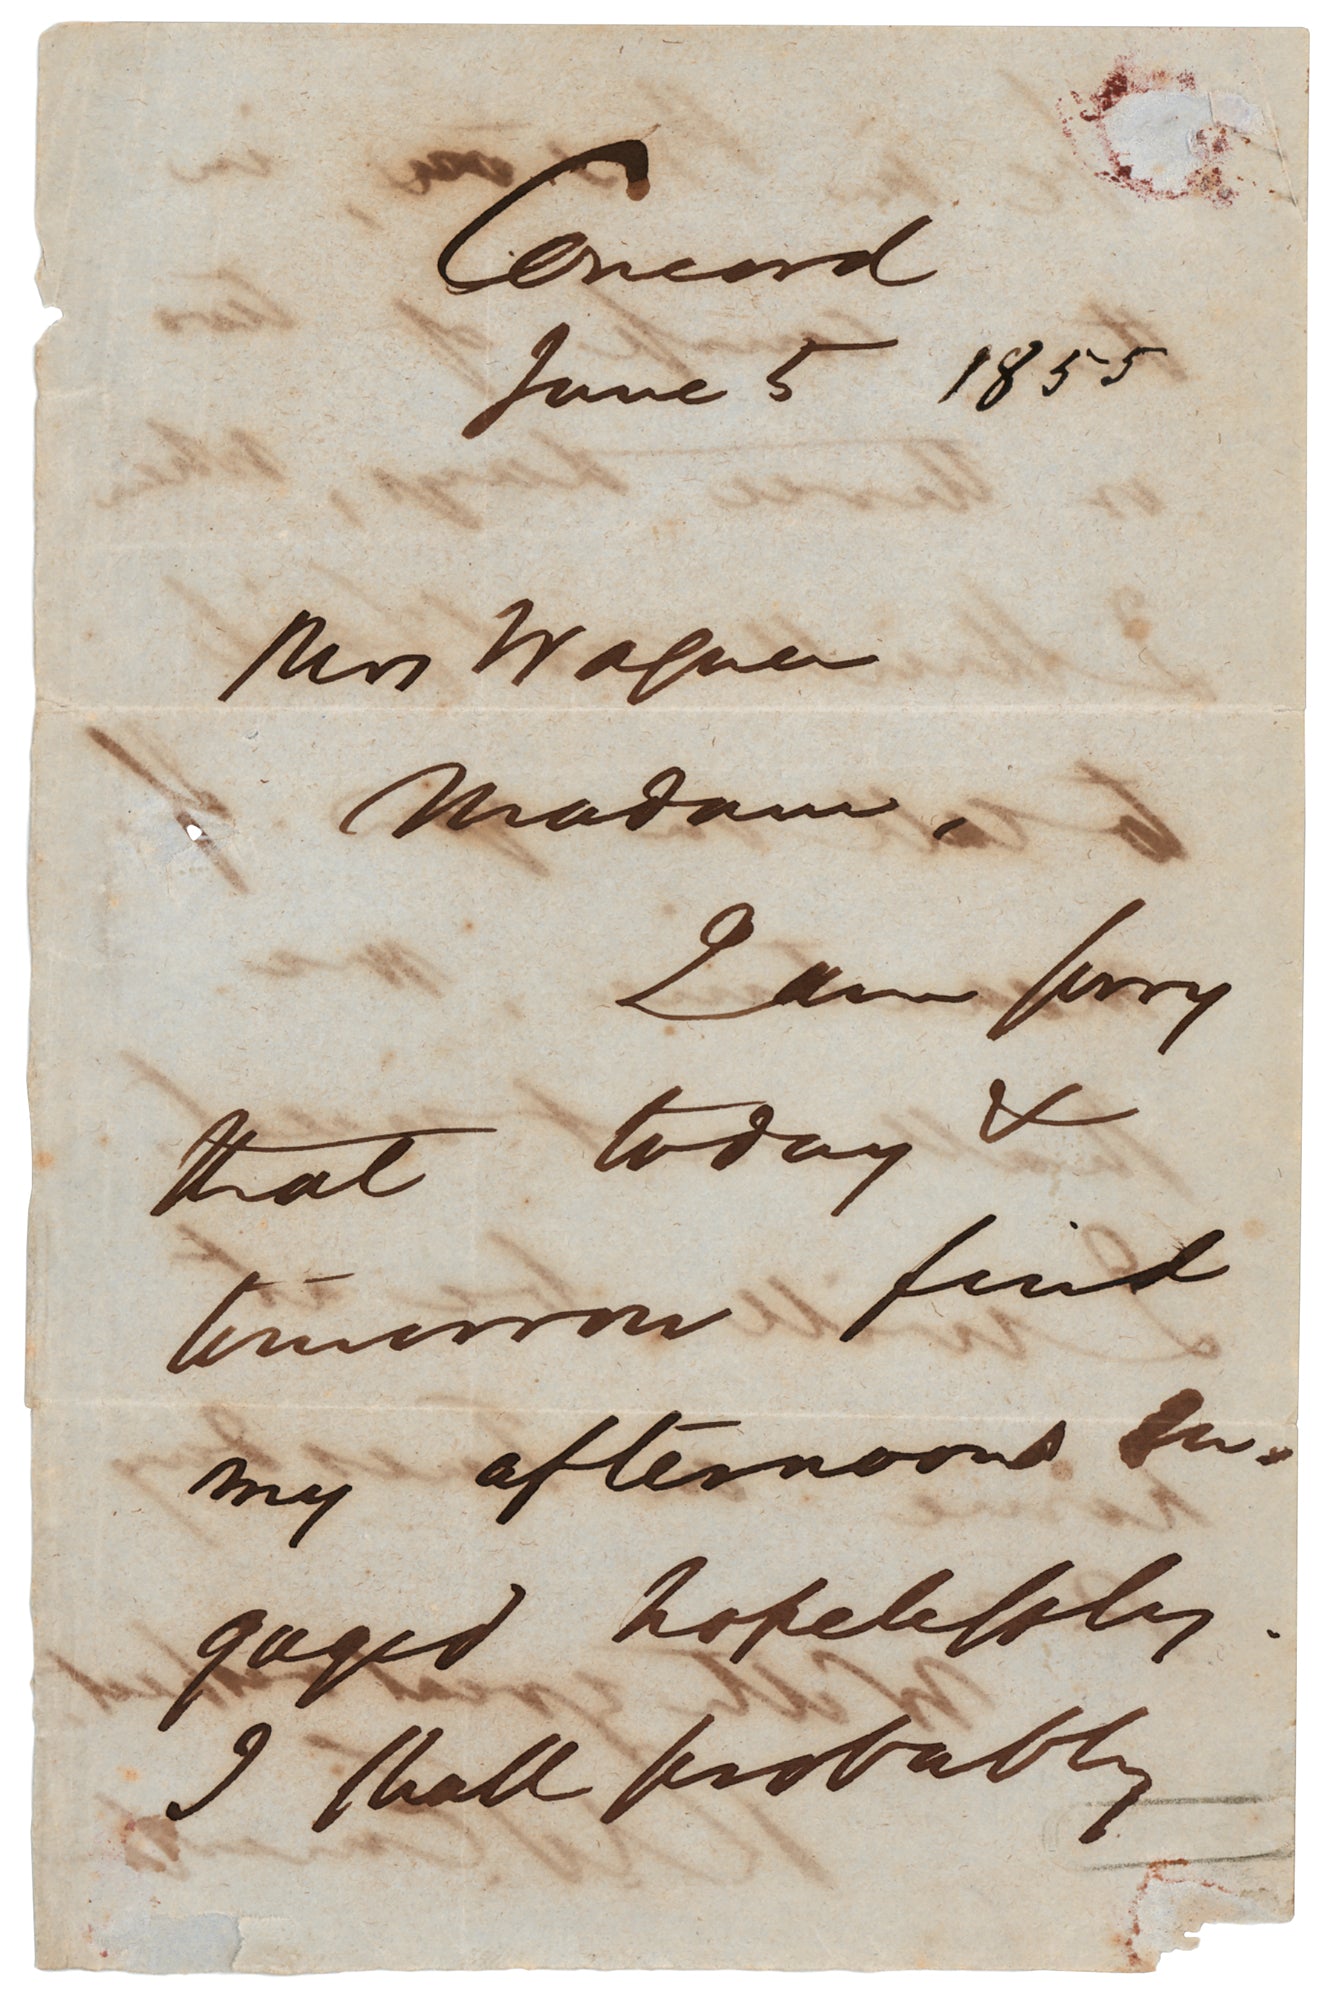 Concord
June 5 1855
Mrs Wagner
Madam,
I am sorry
that today &
tomorrow find
my afternoons en-
gaged hopelessly.
I shall probably